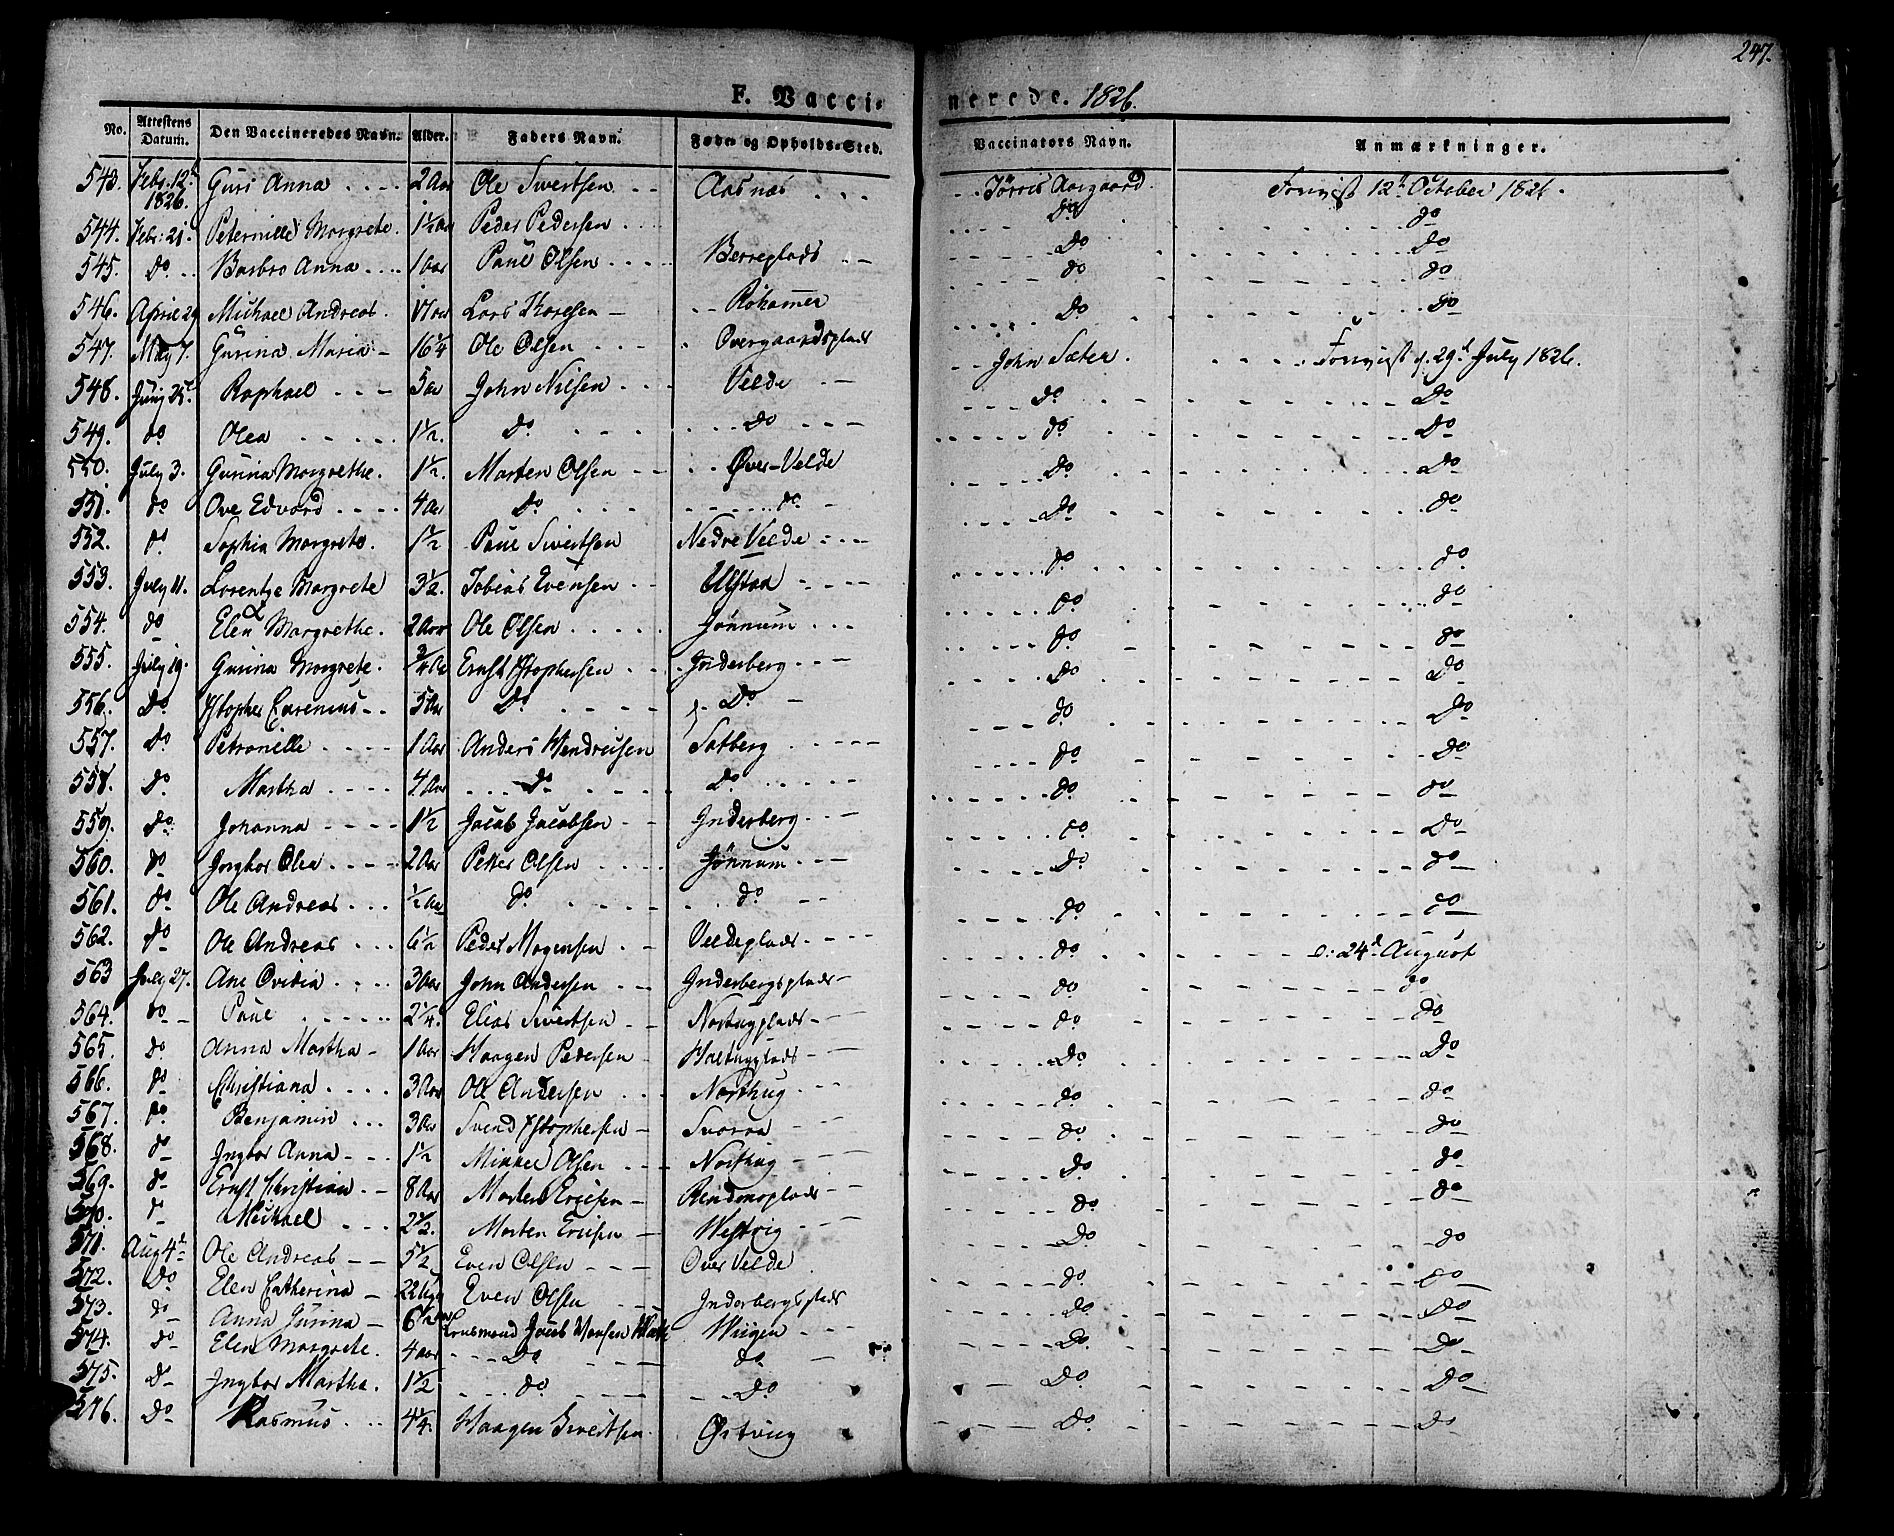 247.
F. Vaccinerede. 1826.
No. Attestens Datum. Den Vaccineredes Navn. Alder. Faders Navn. Føde- og Opholds-Sted. Vaccinators Navn. Anmærkninger.
543. Febr. 12. 1826. Guri Anna 2 Aar Ole Sivertsen Aasnæs Jörris Aargaard. 12te October 1826.
544. Febr: 21. Peternille Margrete. 1½ Aar Peder Pedersen do do
545. Do Barbro Anna 1 Aar Paul Olsen Berreplads Do Do
546. April 29 Michael Andreas. 17 Aar Lars Rohamer do do
547. May 7. Gurina Maria 16¼ Ole Olsen Overgaardsplads Do do
548. Juny 25. Raphael 5 Aar John Nilsen Velde John Sæter. d. 29d July 1826.
549. do Olea 1½. Do Do Do Do
550. July 3. Gurina Margrethe. 1½. Morten Olsen Øver-Velde do Do
551. do Ove Edvard 4 Aar Do do Do Do
552. do Sophia Margrete. 1½ Paul Sivertsen Nedre Velde Do do
553. July 11. Lorentze Margrete 3½. Tobias Evensen Ulstad do do
554. do Elen Margrethe. 2 Aar Ole Olsen Jönnum do do
555. July 19. Gurina Margrete. ¾ Aar Ernst Xstophersen Inderberg do do
556. Do Xstopher Carenius 5 Aar Do Do Do Do
557. Do Petronille 1 Aar Anders Hendricsen Salberg do Do
558. Do. Martha 4 Aar Do Do do Do
559. Do Johanna 1½ Jacob Jacobsen Inderberg do do
560. do Ingbor Olea 2 Aar Petter Olsen Jönnum do Do
561. do Ole Andreas ½ Aar do do Do do
562. do Ole Andreas 6½ Peder Mogensen Veldeplads do do
563 July 27. Ane Ovidia 3 Aar John Andersen Inderbergsplads do d: 24d August
564. do Paul 2¼. Elias Sivertsen Nortugplads do do
565. do Anna Martha 1 Aar Haagen Pedersen Haltugplads do do
566. do Christiana 3 Aar Ole Andersen Northug Do Do
567. do. Benjamin 3 Aar Svend Xstophersen Svorra do do
568. do Ingbor Anna 1½ Mikkel Olsen Northug do do
569. do Ernst Christian 8 Aar Morten Ericsen Do do
570. do Michael 2½. Morten Ericsen do do
571. Aug 4d Ole Andreas 5½ Even Olsen Over Velde Do do
572. Do Elen Catherina 22 Even Olsen Inderbergsplads do do
573. do Anna Gurina 6½ Jacob Hansen Wiigen Do Do
574. do Elen Margrete. 4 Aar Do do Do Do
575. D Ingbor Martha. 1½ do Do Do Do
576. Do Rasmus 4¼. Haagen Sivertsen Østvug Do Do